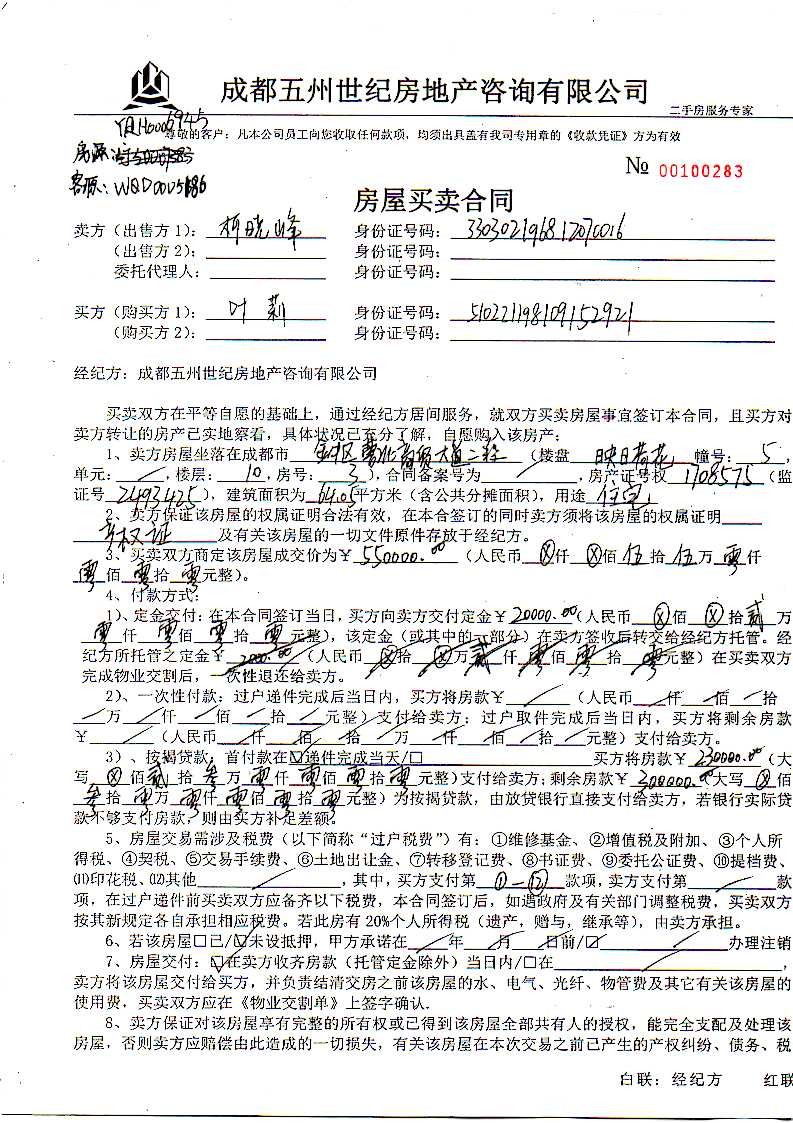 成都五州世纪房地产咨询有限公司
二手房服务专家
YQH0006945
尊敬的客户：凡本公司员工向您收取任何款项，均须出具盖有我司专用章的《收款凭证》方为有效
房源：
客源：WQD0005686
№ 00100283
房屋买卖合同
卖方（出售方1）： 柯晓峰 身份证号码： 330302196812070016
（出售方2）： 身份证号码：
委托代理人： 身份证号码：
买方（购买方1）： 叶莉 身份证号码： 510221198109152921
（购买方2）： 身份证号码：
经纪方：成都五州世纪房地产咨询有限公司
买卖双方在平等自愿的基础上，通过经纪方居间服务，就双方买卖房屋事宜签订本合同，且买方对
卖方转让的房产已实地察看，具体状况已充分了解，自愿购入该房产：
1、卖方房屋坐落在成都市 金牛区 蜀北商贸大道二段 （楼盘 映日荷花 幢号： 5 ，
单元： / ，楼层： 10 ，房号： 3 ），合同备案号为 / ，房产证号权 1708575 （监
证号 2493425 ），建筑面积为 64.05 平方米（含公共分摊面积），用途 住宅
2、卖方保证该房屋的权属证明合法有效，在本合签订的同时卖方须将该房屋的权属证明
产权证 及有关该房屋的一切文件原件存放于经纪方。
3、买卖双方商定该房屋成交价为￥ 550000.00 （人民币 ⊗ 仟 ⊗ 佰 伍 拾 伍 万 零 仟
零 佰 零 拾 零 元整）。
4、付款方式：
1）、定金交付：在本合同签订当日，买方向卖方交付定金￥ 20000.00 （人民币 ⊗ 佰 ⊗ 拾 贰 万
零 仟 零 佰 零 拾 零 元整），该定金（或其中的一部分）在卖方签收后转交给经纪方托管。经
纪方所托管之定金￥ 2000.00 （人民币 ⊗ 拾 ⊗ 万 贰 仟 零 佰 零 拾 零 元整）在买卖双方
完成物业交割后，一次性退还给卖方。
2）、一次性付款：过户递件完成后当日内，买方将房款￥ / （人民币 / 仟 / 佰 / 拾
/ 万 / 仟 / 佰 / 拾 / 元整）支付给卖方；过户取件完成后当日内，买方将剩余房款
￥ / （人民币 / 仟 / 佰 / 拾 / 万 / 仟 / 佰 / 拾 / 元整）支付给卖方。
3）、按揭贷款：首付款在☑递件完成当天/□ 买方将房款￥ 230000.00 （大
写 ⊗ 佰 贰 拾 叁 万 零 仟 零 佰 零 拾 零 元整）支付给卖方；剩余房款￥ 300000.00 （大写 ⊗ 佰
叁 拾 零 万 零 仟 零 佰 零 拾 零 元整）为按揭贷款，由放贷银行直接支付给卖方，若银行实际贷
款不够支付房款，则由买方补足差额。
5、房屋交易需涉及税费（以下简称“过户税费”）有：①维修基金、②增值税及附加、③个人所
得税、④契税、⑤交易手续费、⑥土地出让金、⑦转移登记费、⑧书证费、⑨委托公证费、⑩提档费、
⑾印花税、⑿其他 / ，其中，买方支付第 ①—⑫ 款项，卖方支付第 / 款
项，在过户递件前买卖双方应备齐以下税费，本合同签订后，如遇政府及有关部门调整税费，买卖双方
按其新规定各自承担相应税费。若此房有20%个人所得税（遗产，赠与，继承等），由卖方承担。
6、若该房屋□已/☑未设抵押，甲方承诺在 / 年 / 月 / 日前/□ / 办理注销
7、房屋交付：☑在卖方收齐房款（托管定金除外）当日内/□在 / ，
卖方将该房屋交付给买方，并负责结清交房之前该房屋的水、电气、光纤、物管费及其它有关该房屋的
使用费，买卖双方应在《物业交割单》上签字确认.
8、卖方保证对该房屋享有完整的所有权或已得到该房屋全部共有人的授权，能完全支配及处理该
房屋，否则卖方应赔偿由此造成的一切损失，有关该房屋在本次交易之前已产生的产权纠纷、债务、税
白联：经纪方 红联